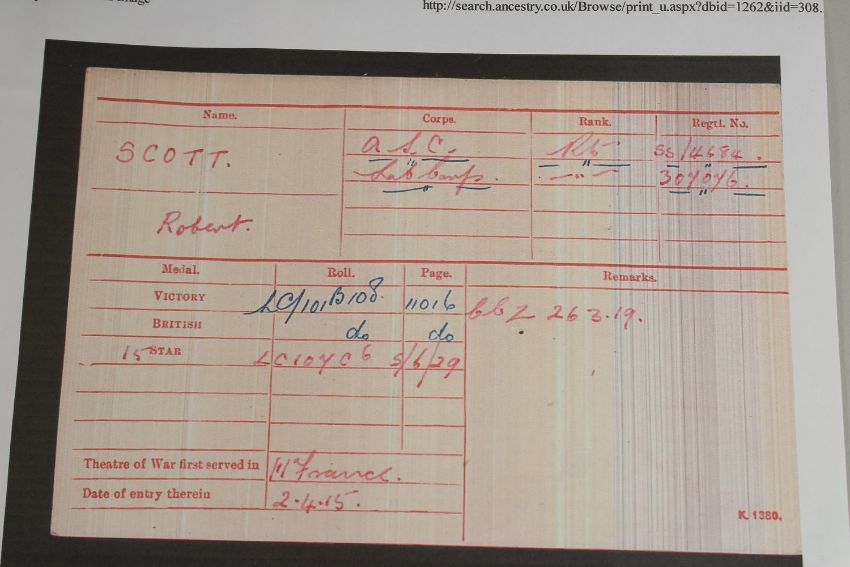 http://search.ancestry.co.uk/Browse/print_u.aspx?dbid=1262&iid=308..
Name. Corps. Rank. Regtl. No.
SCOTT. A.S.C. Pte SS/4684.
Lab Corps. —"— 307076.
Robert.
Medal. Roll. Page. Remarks.
VICTORY LC/101B108. 11016 26 3.19.
BRITISH do do
15 STAR LC107C6 5/6/29
Theatre of War first served in (1) France.
Date of entry therein 2.4.15.
K 1380.